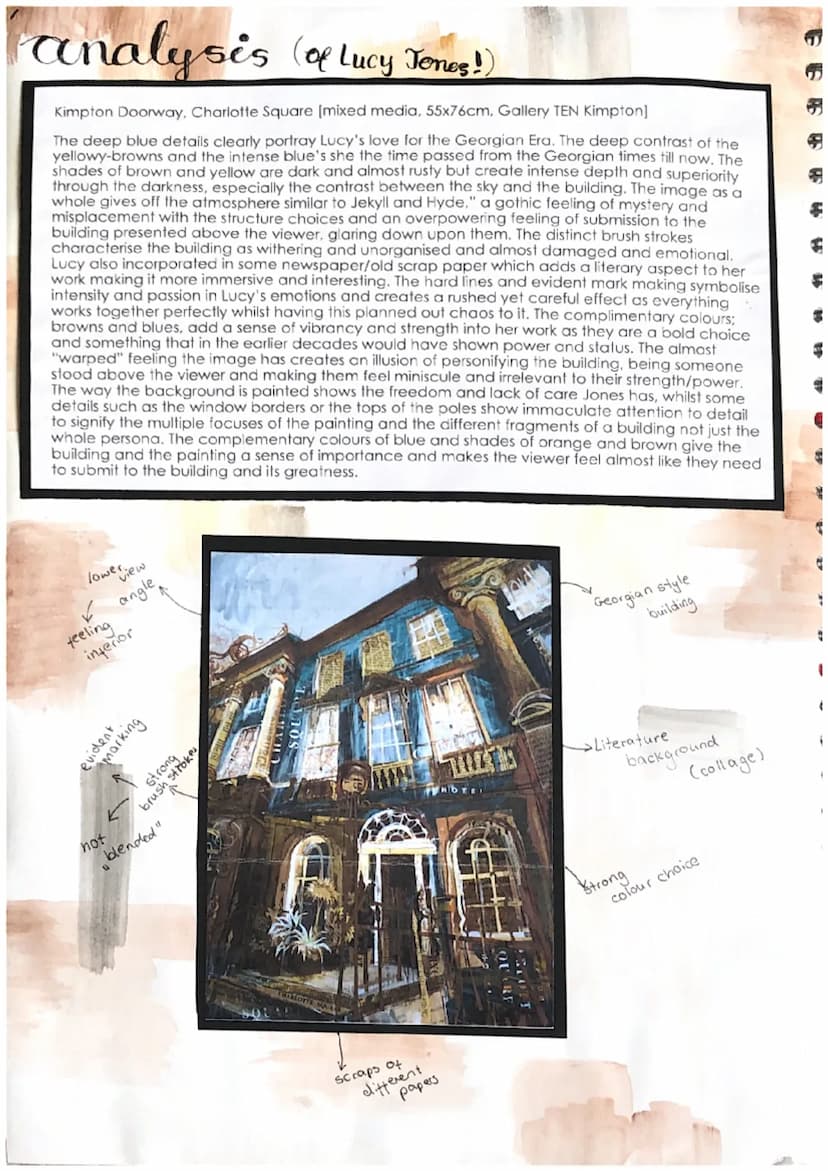 analysis (of Lucy Jones!)
Kimpton Doorway, Charlotte Square [mixed media, 55x76cm, Gallery TEN Kimpton]
The deep blue details clearly portray Lucy's love for the Georgian Era. The deep contrast of the
yellowy-browns and the intense blue's she the time passed from the Georgian times till now. The
shades of brown and yellow are dark and almost rusty but create intense depth and superiority
through the darkness, especially the contrast between the sky and the building. The image as a
whole gives off the atmosphere similar to Jekyll and Hyde," a gothic feeling of mystery and
misplacement with the structure choices and an overpowering feeling of submission to the
building presented above the viewer, glaring down upon them. The distinct brush strokes
characterise the building as withering and unorganised and almost damaged and emotional.
Lucy also incorporated in some newspaper/old scrap paper which adds a literary aspect to her
work making it more immersive and interesting. The hard lines and evident mark making symbolise
intensity and passion in Lucy's emotions and creates a rushed yet careful effect as everything
works together perfectly whilst having this planned out chaos to it. The complimentary colours;
browns and blues, add a sense of vibrancy and strength into her work as they are a bold choice
and something that in the earlier decades would have shown power and status. The almost
"warped" feeling the image has creates an illusion of personifying the building, being someone
stood above the viewer and making them feel miniscule and irrelevant to their strength/power.
The way the background is painted shows the freedom and lack of care Jones has, whilst some
details such as the window borders or the tops of the poles show immaculate attention to detail
to signify the multiple focuses of the painting and the different fragments of a building not just the
whole persona. The complementary colours of blue and shades of orange and brown give the
building and the painting a sense of importance and makes the viewer feel almost like they need
to submit to the building and its greatness.
lower view
angle
feeling
inferior
Georgian style
building
evident
marking
strong
brush strokes
not
"blended"
Literature
background
(collage)
strong
colour choice
scraps of
different
papers
SQUARE
HOTEL